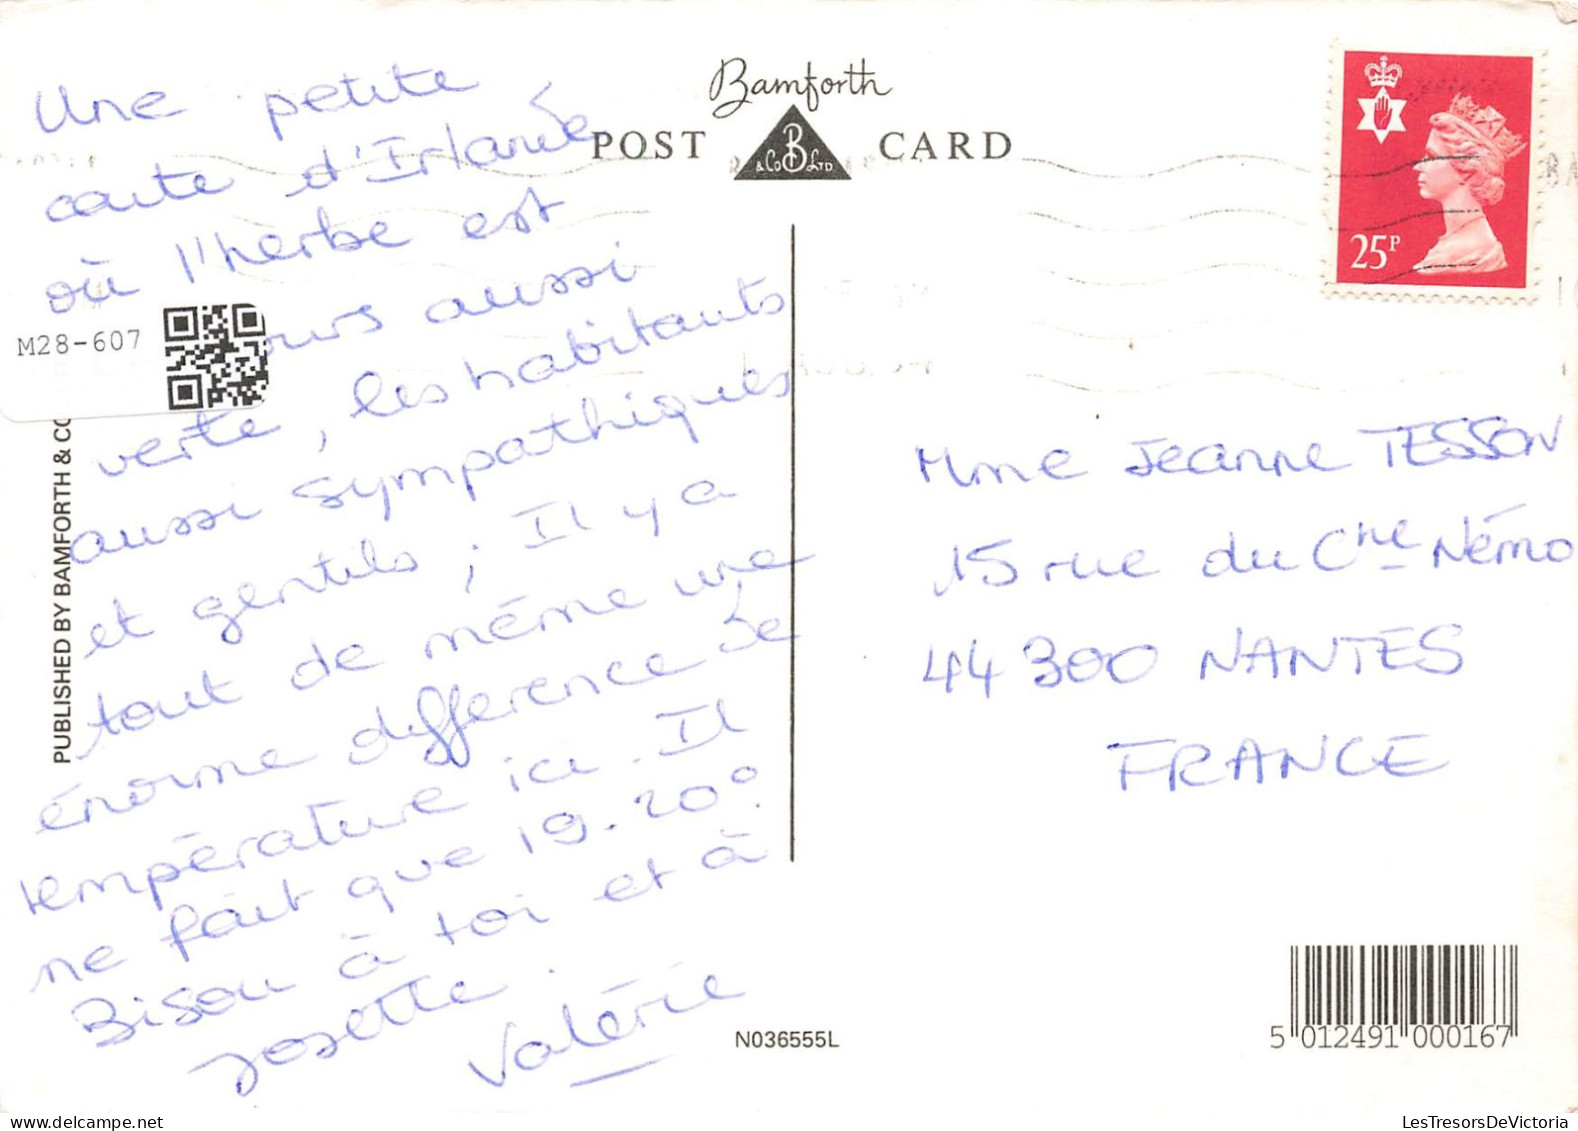 Une petite
carte d'Irlande
où l'herbe est
ours aussi
verte, les habitants
aussi sympathiques
et gentils ; Il y a
tout de même une
énorme difference de
température ici. Il
ne fait que 19-20°.
Bisou à toi et à
Josette.
Valérie
M28-607
PUBLISHED BY BAMFORTH & CO
Bamforth
POST CARD
B
& Co LTD
25P
Mme Jeanne TESSON
15 rue du Cne Némo
44300 NANTES
FRANCE
N036555L
5 012491 000167
LesTresorsDeVictoria
www.delcampe.net